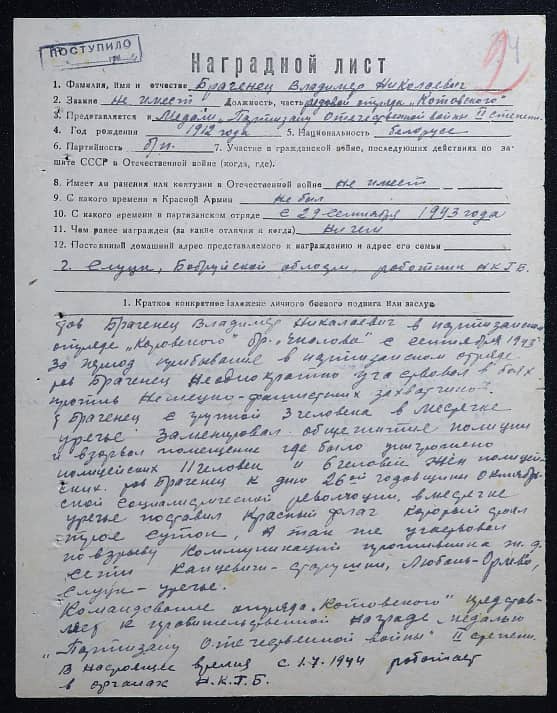 ПОСТУПИЛО
Наградной лист
1. Фамилия, имя и отчество Браченец Владимер Николаевич
2. Звание не имеет Должность, часть рядовой отряда „Котовского"
3. Представляется к Медали „Партизану Отечественной войны" II степени.
4. Год рождения 1912 года 5. Национальность белорусс
6. Партийность б/п. 7. Участие в гражданской войне, последующих действиях по за-
щите СССР в Отечественной войне (когда, где).
8. Имеет ли ранения или контузии в Отечественной войне не имеет
9. С какого времени в Красной Армии не был
10. С какого времени в партизанском отряде с 29 сентября 1943 года
11. Чем ранее награжден (за какие отличия и когда) ни чем
12. Постоянный домашний адрес представляемого к награждению и адрес его семьи
г. Слуцк, Бобруйской области, работник НКГБ.
1. Краткое конкретное изложение личного боевого подвига или заслуг
тов Браченец Владимер Николаевич в партизанском
отряде „Котовского" бр. с сентября 1943
За период прибывание в партизанском отряде
тов Браченец неоднократно участвовал в боях
против немецко-фашистких захватчиков.
Браченец с групой 3 человека в местечке
уречье заменировал общежитие полиции
и взорвал помещение где было уничтожено
полицейских 11 человек и 6 человек жён полицей-
ских. тов Браченец к дню 26ой годовщины Октябрь-
ской социалистической революции, в местечке
уречье поставил красный флаг который стоял
суток, А так же участвовал
по взрыву коммуникаций противника ж.д.
сети старушки, Любань-
Слуцк-уречье.
Командование отряда „Котовского" представ-
ляет к правительственной награде медалью
„Партизану Отечественной войны" II степени.
В настоящее время с 1.7.1944 работает
в органах Н.К.Г.Б.